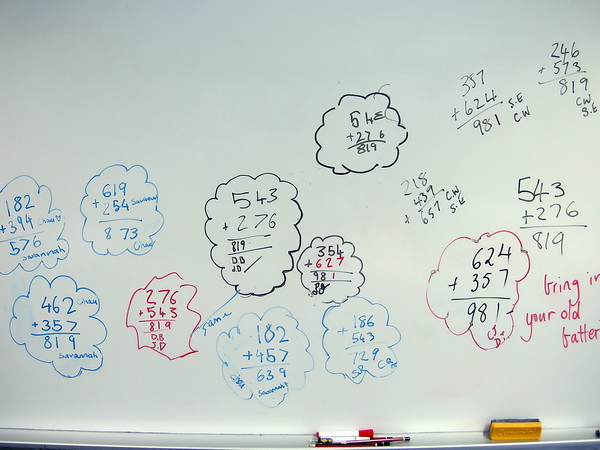 246
+ 573
819
CW
S.E
357
+ 624
981
S.E
CW
54
+ 276
819
218
+ 439
657
CW
S.E
543
+ 276
819
182
+ 394
576
Savannah
619
+ 254
873
Savannah
543
+ 276
819
D.B
J.D
354
+ 627
981
624
+ 357
981
bring in
your old
batter
462
+ 357
819
Savannah
276
+ 543
819
D.B
J.D
same
182
+ 457
639
Savannah
186
+ 543
729